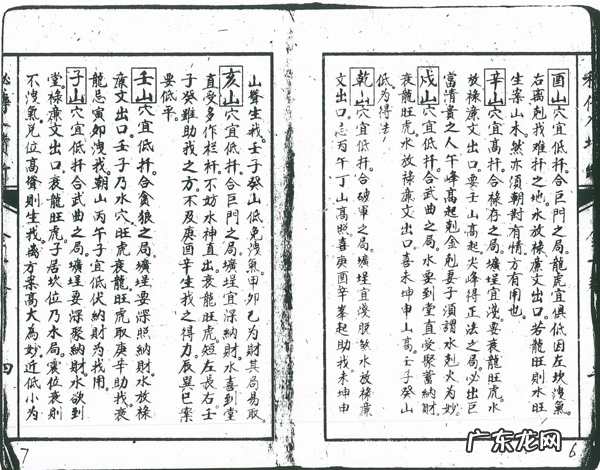 酉山穴宜低扦。合巨門之局。龍虎宜俱低。因左坎洩氣。
右离剋我。难扦之地。水放祿廉文出口。若龍旺則水旺
生案山木。然亦須朝對有情方有用也。
辛山穴宜高扦。合祿存之局。壙埕宜淺。要衰龍旺虎。水
放祿廉文出口。要壬山高起。火峰得正法之局。必出巨
富清貴之人。午峰高起剋金。剋妻子。須謂水剋火為妙。
戍山穴宜低扦。合武曲之局。水要到堂直受聚蓄納財。
衰龍旺虎。水放祿廉文出口。喜未坤申山高。壬子癸山
低為得法。
乾山穴宜低扦。合破軍之局。壙埕宜淺脫煞。水放祿廉
文出口。忌丙午丁山高照。喜庚酉辛峯起助我。未坤申
山聳生我。壬子癸山低免洩氣。甲卯乙為財其局易取。
亥山穴宜低扦。合巨門之局。壙埕宜深納財。水喜到堂
直受。多作栏杆。不妨水神直出。衰龍旺虎。短左長右。壬
子癸雖助我之方。不及庚酉辛生我之得力。辰巽巳案
要低平。
壬山穴宜低扦。合貪狼之局。壙埕要深照納財。水放祿
廉文出口。壬子乃水穴。旺虎衰龍。旺虎取庚辛助我。衰
龍忌寅卯洩我。朝山丙午子宜低伏納財為我用。
子山穴宜低扦。合武曲之局。壙埕要深聚納財。水欲到
堂。祿廉文出口。衰龍旺虎。子居坎位乃水局。震位衰則
不洩氣。兌位高聳則生我。离方案高大為妙。近低小为
四
7
6
广东龙网